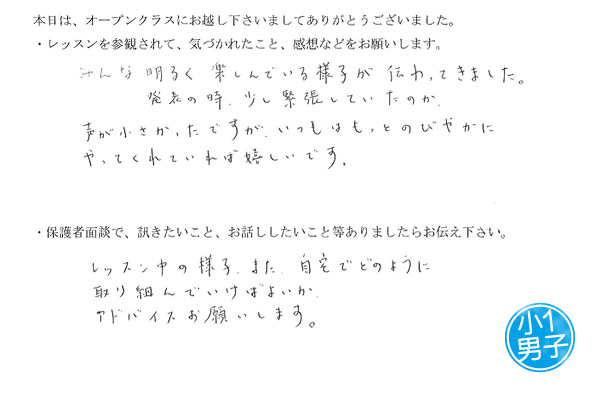 本日は、オープンクラスにお越し下さいましてありがとうございました。
・レッスンを参観されて、気づかれたこと、感想などをお願いします。
みんな明るく楽しんでいる様子が伝わってきました。
発表の時、少し緊張していたのか、
声が小さかったですが、いつもはもっとのびやかに
やってくれていれば嬉しいです。
・保護者面談で、訊きたいこと、お話ししたいこと等ありましたらお伝え下さい。
レッスン中の様子、また、自宅でどのように
取り組んでいけばよいか、
アドバイスお願いします。
小1
男子